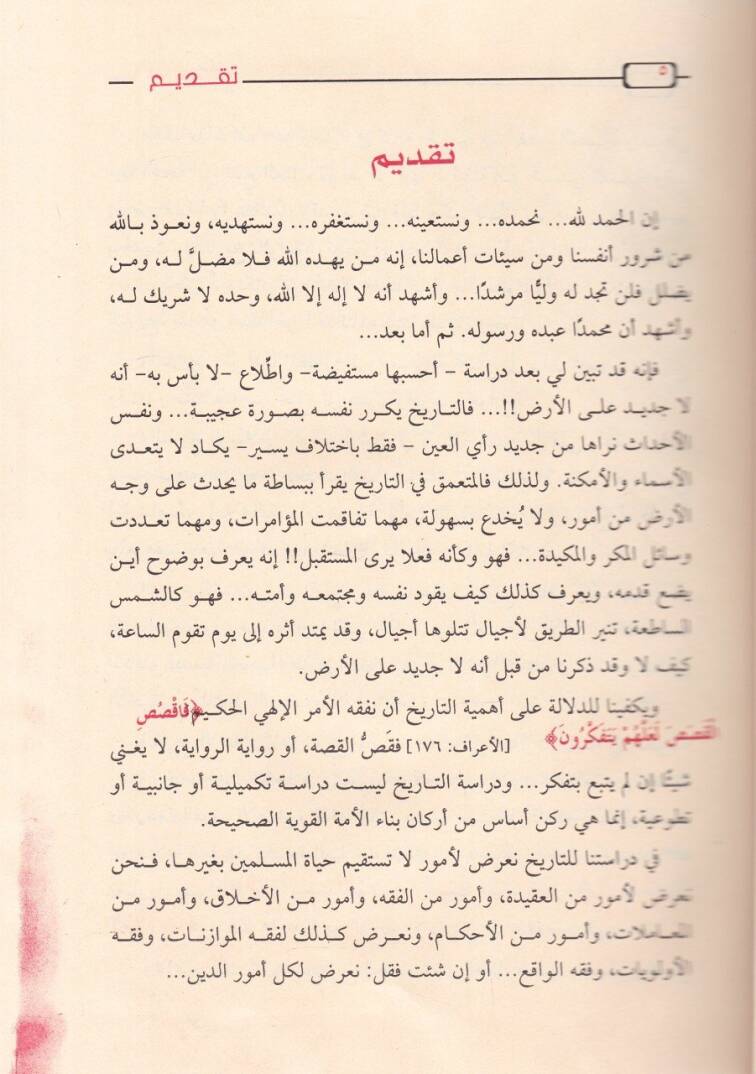 ٥
تقديم
تقديم
إن الحمد لله... نحمده... ونستعينه... ونستغفره... ونستهديه، ونعوذ بالله
من شرور أنفسنا ومن سيئات أعمالنا، إنه من يهده الله فلا مضلَّ له، ومن
يضلل فلن تجد له وليًّا مرشدًا... وأشهد أنه لا إله إلا الله، وحده لا شريك له،
وأشهد أن محمدًا عبده ورسوله. ثم أما بعد...
فإنه قد تبين لي بعد دراسة - أحسبها مستفيضة- واطِّلاع -لا بأس به- أنه
لا جديد على الأرض!!... فالتاريخ يكرر نفسه بصورة عجيبة... ونفس
الأحداث نراها من جديد رأي العين - فقط باختلاف يسير- يكاد لا يتعدى
الأسماء والأمكنة. ولذلك فالمتعمق في التاريخ يقرأ ببساطة ما يحدث على وجه
الأرض من أمور، ولا يُخدع بسهولة، مهما تفاقمت المؤامرات، ومهما تعددت
وسائل المكر والمكيدة... فهو وكأنه فعلا يرى المستقبل!! إنه يعرف بوضوح أين
يضع قدمه، ويعرف كذلك كيف يقود نفسه ومجتمعه وأمته... فهو كالشمس
الساطعة، تنير الطريق لأجيال تتلوها أجيال، وقد يمتد أثره إلى يوم تقوم الساعة،
كيف لا وقد ذكرنا من قبل أنه لا جديد على الأرض.
ويكفينا للدلالة على أهمية التاريخ أن نفقه الأمر الإلهي الحكيم ﴿فَاقْصُصِ
الْقَصَصَ لَعَلَّهُمْ يَتَفَكَّرُونَ﴾ [الأعراف: ١٧٦] فقَصُّ القصة، أو رواية الرواية، لا يغني
شيئًا إن لم يتبع بتفكر... ودراسة التاريخ ليست دراسة تكميلية أو جانبية أو
تطوعية، إنما هي ركن أساس من أركان بناء الأمة القوية الصحيحة.
في دراستنا للتاريخ نعرض لأمور لا تستقيم حياة المسلمين بغيرها، فنحن
نعرض لأمور من العقيدة، وأمور من الفقه، وأمور من الأخلاق، وأمور من
المعاملات، وأمور من الأحكام، ونعرض كذلك لفقه الموازنات، وفقه
الأولويات، وفقه الواقع... أو إن شئت فقل: نعرض لكل أمور الدين...